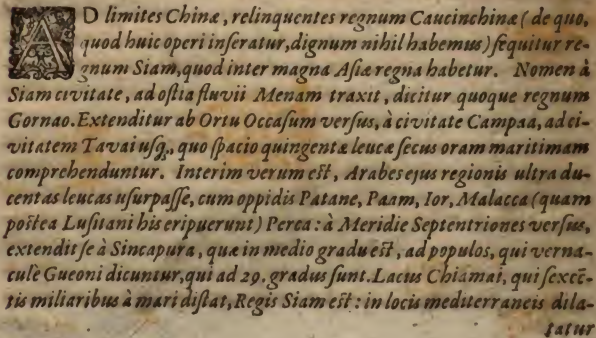 AD limites Chinæ, relinquentes regnum Caucinchinæ ( de quo,
quod huic operi inſeratur, dignum nihil habemus) ſequitur re-
gnum Siam, quod inter magna Aſiæ regna habetur. Nomen à
Siam civitate, ad oſtia fluvii Menam traxit, dicitur quoque regnum
Gornao. Extenditur ab Ortu Occaſum verſus, à civitate Campaa, ad ci-
vitatem Tavai uſq;, quo ſpacio quingentæ leucæ ſecus oram maritimam
comprehenduntur. Interim verum eſt, Arabes ejus regionis ultra du-
centas leucas uſurpaſſe, cum oppidis Patane, Paam, Ior, Malacca (quam
poſtea Luſitani his eripuerunt) Perca : à Meridie Septentriones verſus,
extendit ſe à Sincapura, quæ in medio gradu eſt, ad populos, qui verna-
culè Gueoni dicuntur, qui ad 29. gradus ſunt. Lacus Chiamai, qui ſexcē-
tis miliaribus à mari diſtat, Regis Siam eſt : in locis mediterraneis dila-
tatur